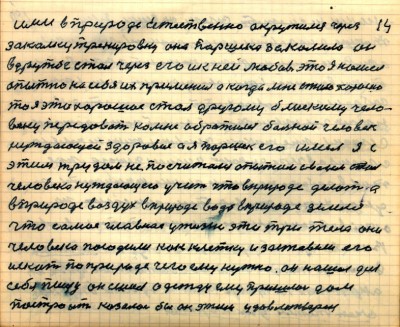 ими в природе естественно окружился через 14
закалку тренировку она Паршека закалила он
в дружбе стал через его к ней любов, это я нашел
опитно на себя их применил а когда мне стало хорошо
то я это хорошое стал другому близкому чело-
веку передовать ко мне обратился больной человек
нуждающей здоровья а я Паршек его имел я с
этим трудом не посчитали опитом своим стал
человека нуждающего учить что в природе делать, а
в природе воздух в природе вода в природе земля
что самое главная у жизни эти три тела они
человека породили как клетку и заставили его
искать по природе чего ему нужно. он нашел для
себя пищу он сшил одежду ему пришлос дом
построить казалос бы он этим удовлетворен